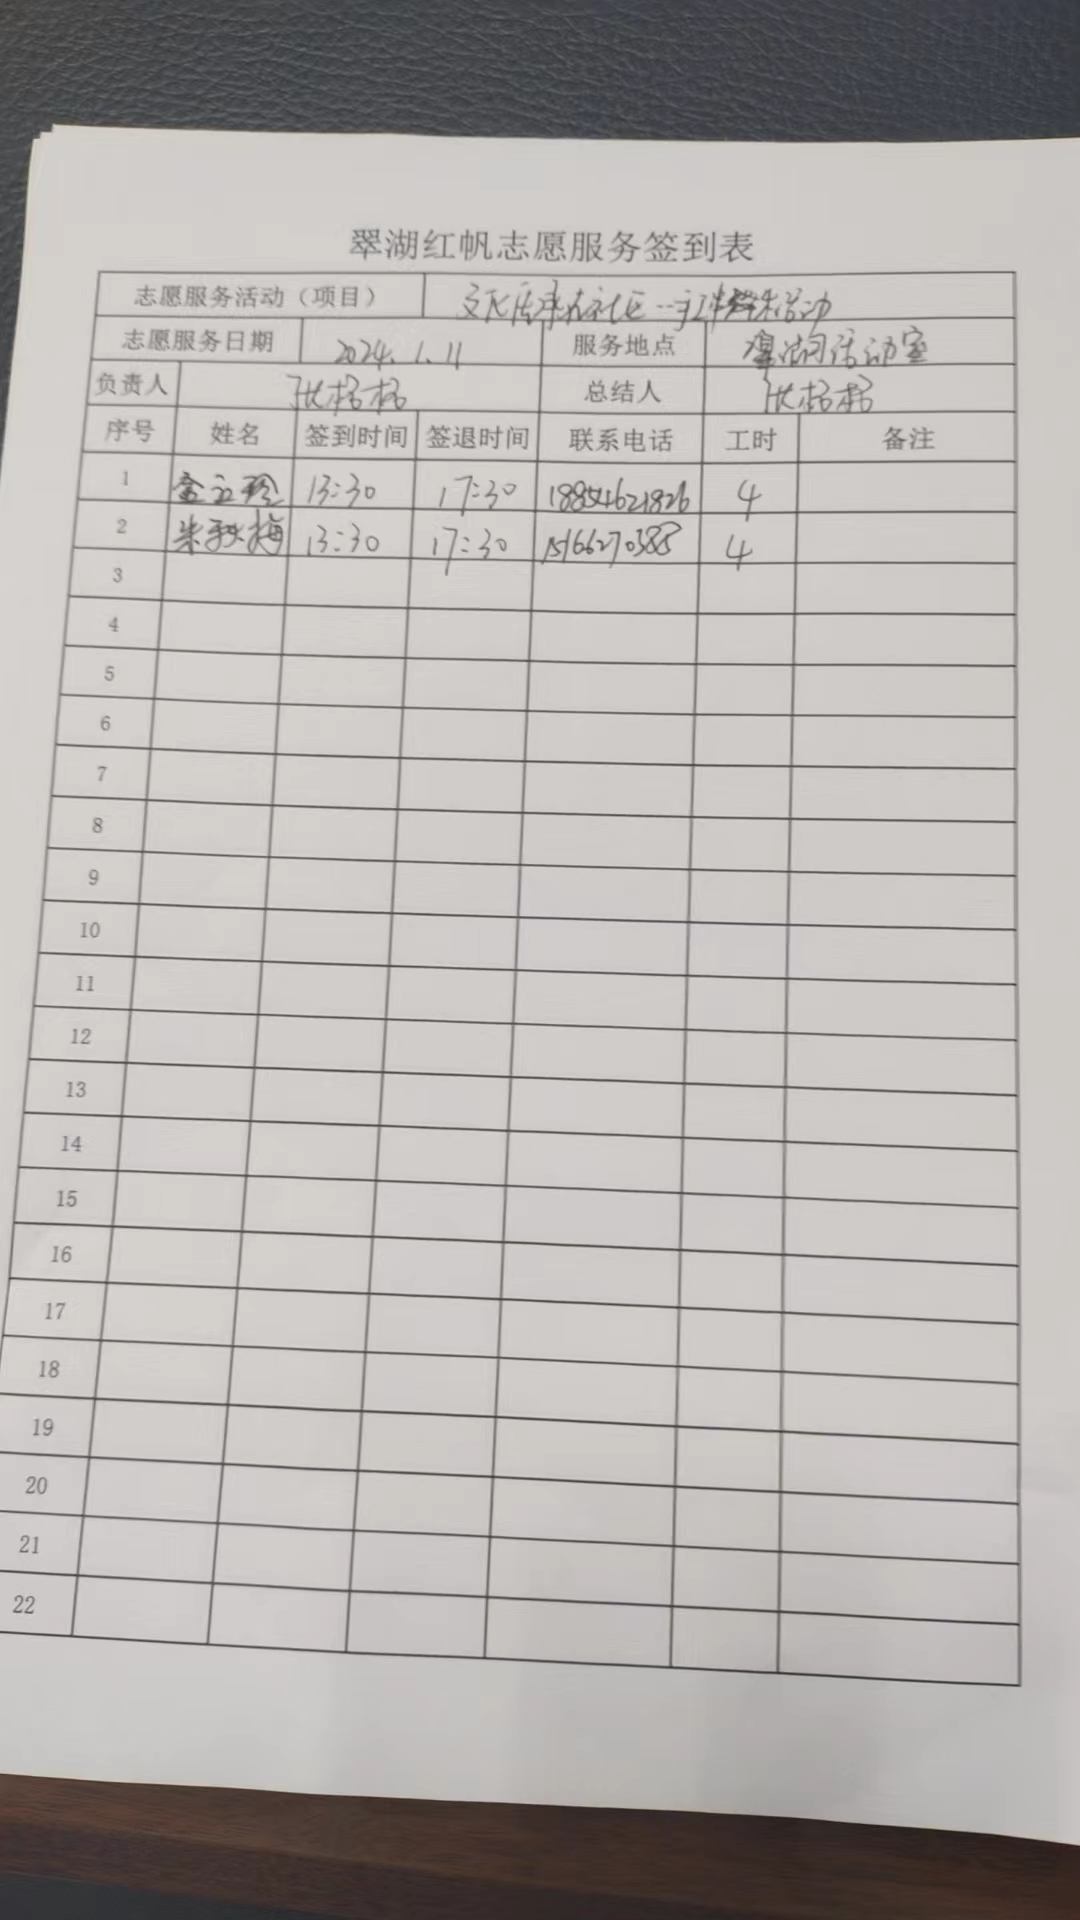 翠湖红帆志愿服务签到表
志愿服务活动（项目） 文化传承在社区 活动
志愿服务日期 2024.1.11 服务地点 湖活动室
负责人 张格格 总结人 张格格
序号 姓名 签到时间 签退时间 联系电话 工时 备注
1 13:30 17:30 18854621826 4
2 朱秋梅 13:30 17:30 15166270388 4
3
4
5
6
7
8
9
10
11
12
13
14
15
16
17
18
19
20
21
22